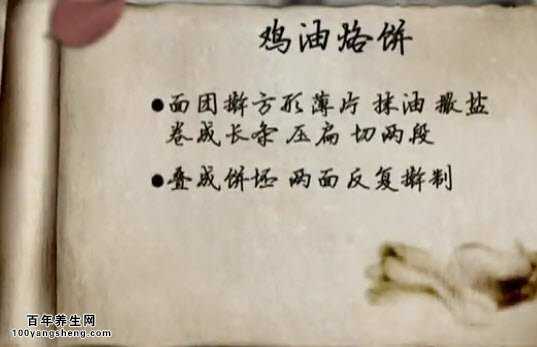 鸡油烙饼
●面团擀方形薄片 抹油 撒盐
卷成长条 压扁 切两段
●叠成饼坯 两面反复擀制
百年养生网
100yangsheng.com